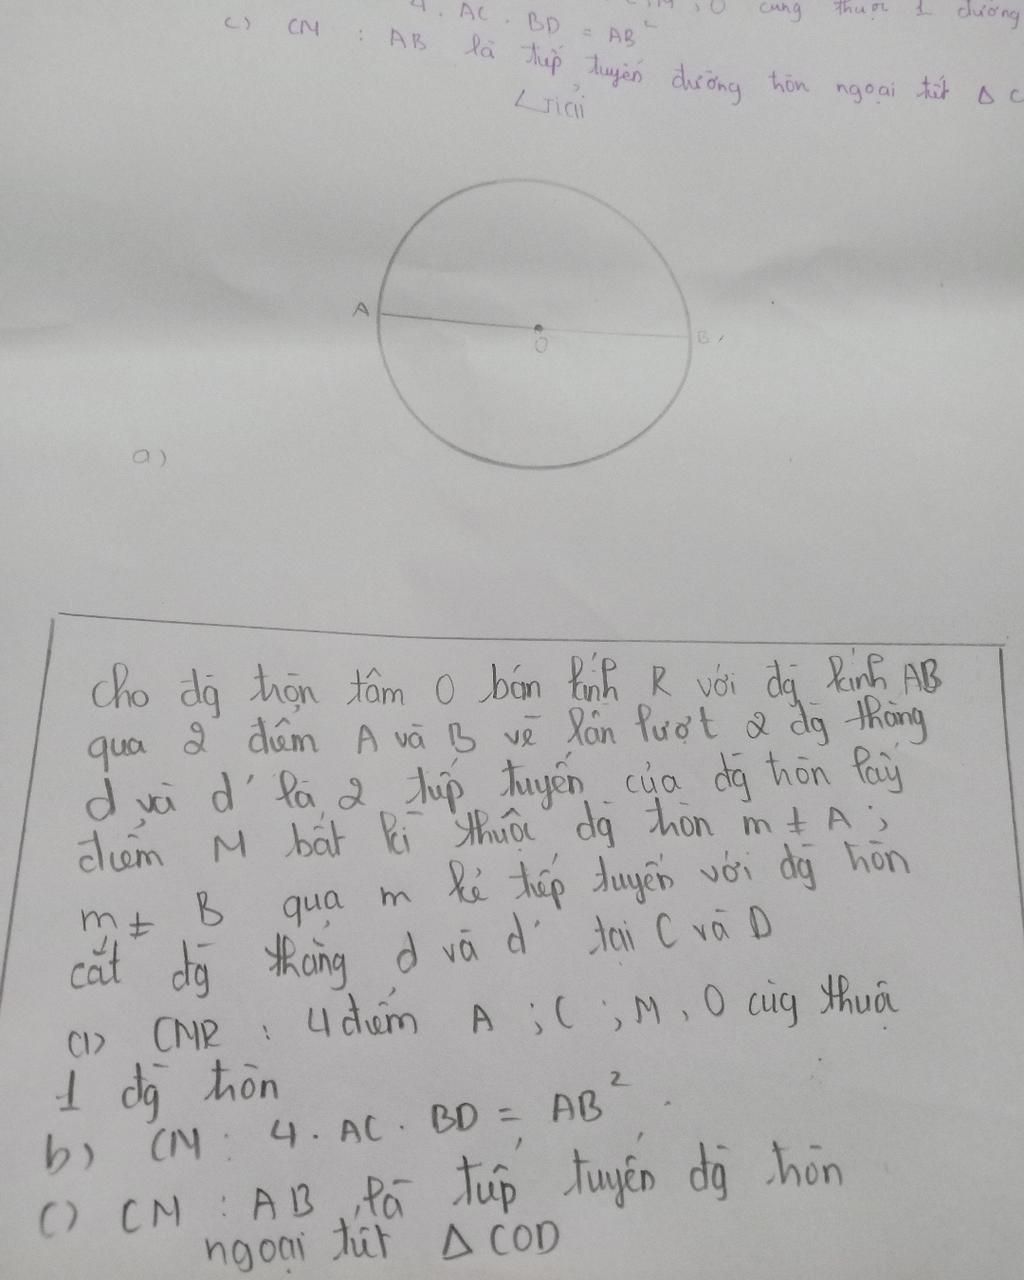 4. AC. BD = AB²
, M, O cùng thuộc 1 đường
c) CM : AB là tiếp tuyến đường tròn ngoại tiếp Δ C
Giải
A
O
B
a)
Cho đg tròn tâm O bán kính R với đg kính AB
qua 2 điểm A và B vẽ lần lượt 2 đg thẳng
d và d' là 2 tiếp tuyến của đg tròn lấy
điểm M bất kì thuộc đg tròn m ≠ A ;
m ≠ B qua m kẻ tiếp tuyến với đg tròn
cắt đg thẳng d và d' tại C và D
a) CMR : 4 điểm A ; C ; M , O cùg thuộc
1 đg tròn
b) CM : 4. AC. BD = AB².
c) CM : AB là tiếp tuyến đg tròn
ngoại tiếp Δ COD